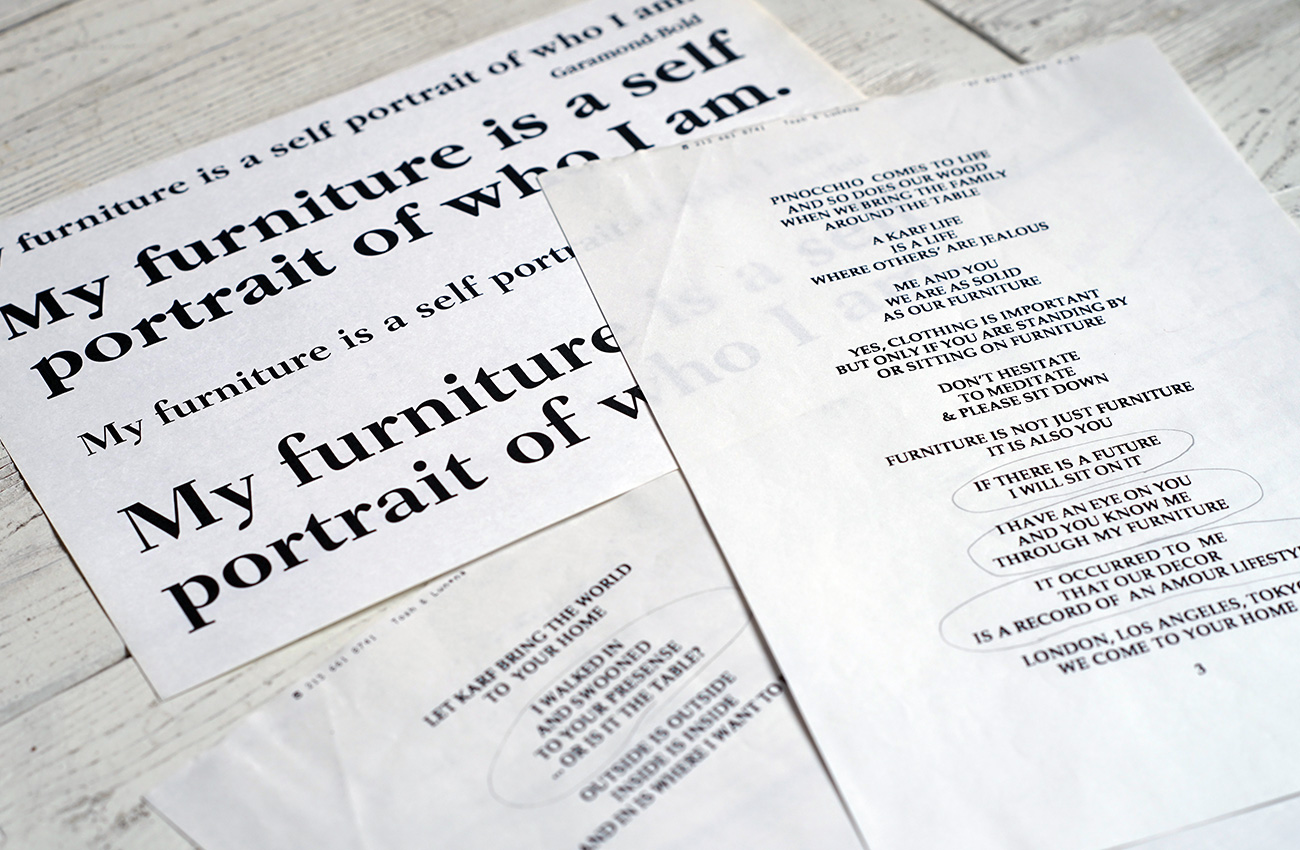 furniture is a self portrait of who I am.
Garamond-Bold
My furniture is a self
portrait of who I am.
My furniture is a self
My furniture
portrait of
PINOCCHIO COMES TO LIFE
AND SO DOES OUR WOOD
WHEN WE BRING THE FAMILY
AROUND THE TABLE
A KARF LIFE
IS A LIFE
WHERE OTHERS' ARE JEALOUS
ME AND YOU
WE ARE AS SOLID
AS OUR FURNITURE
YES, CLOTHING IS IMPORTANT
BUT ONLY IF YOU ARE STANDING BY
OR SITTING ON FURNITURE
DON'T HESITATE
TO MEDITATE
& PLEASE SIT DOWN
FURNITURE IS NOT JUST FURNITURE
IT IS ALSO YOU
IF THERE IS A FUTURE
I WILL SIT ON IT
I HAVE AN EYE ON YOU
AND YOU KNOW ME
THROUGH MY FURNITURE
IT OCCURRED TO ME
THAT OUR DECOR
IS A RECORD OF AN AMOUR
LONDON, LOS ANGELES,
WE COME TO YOUR HOME
3
LET KARF BRING THE WORLD
TO YOUR HOME
I WALKED IN
AND SWOONED
TO YOUR PRESENSE
... OR IS IT THE TABLE?
OUTSIDE IS OUTSIDE
INSIDE IS INSIDE
AND IN IS WHERE I WANT TO